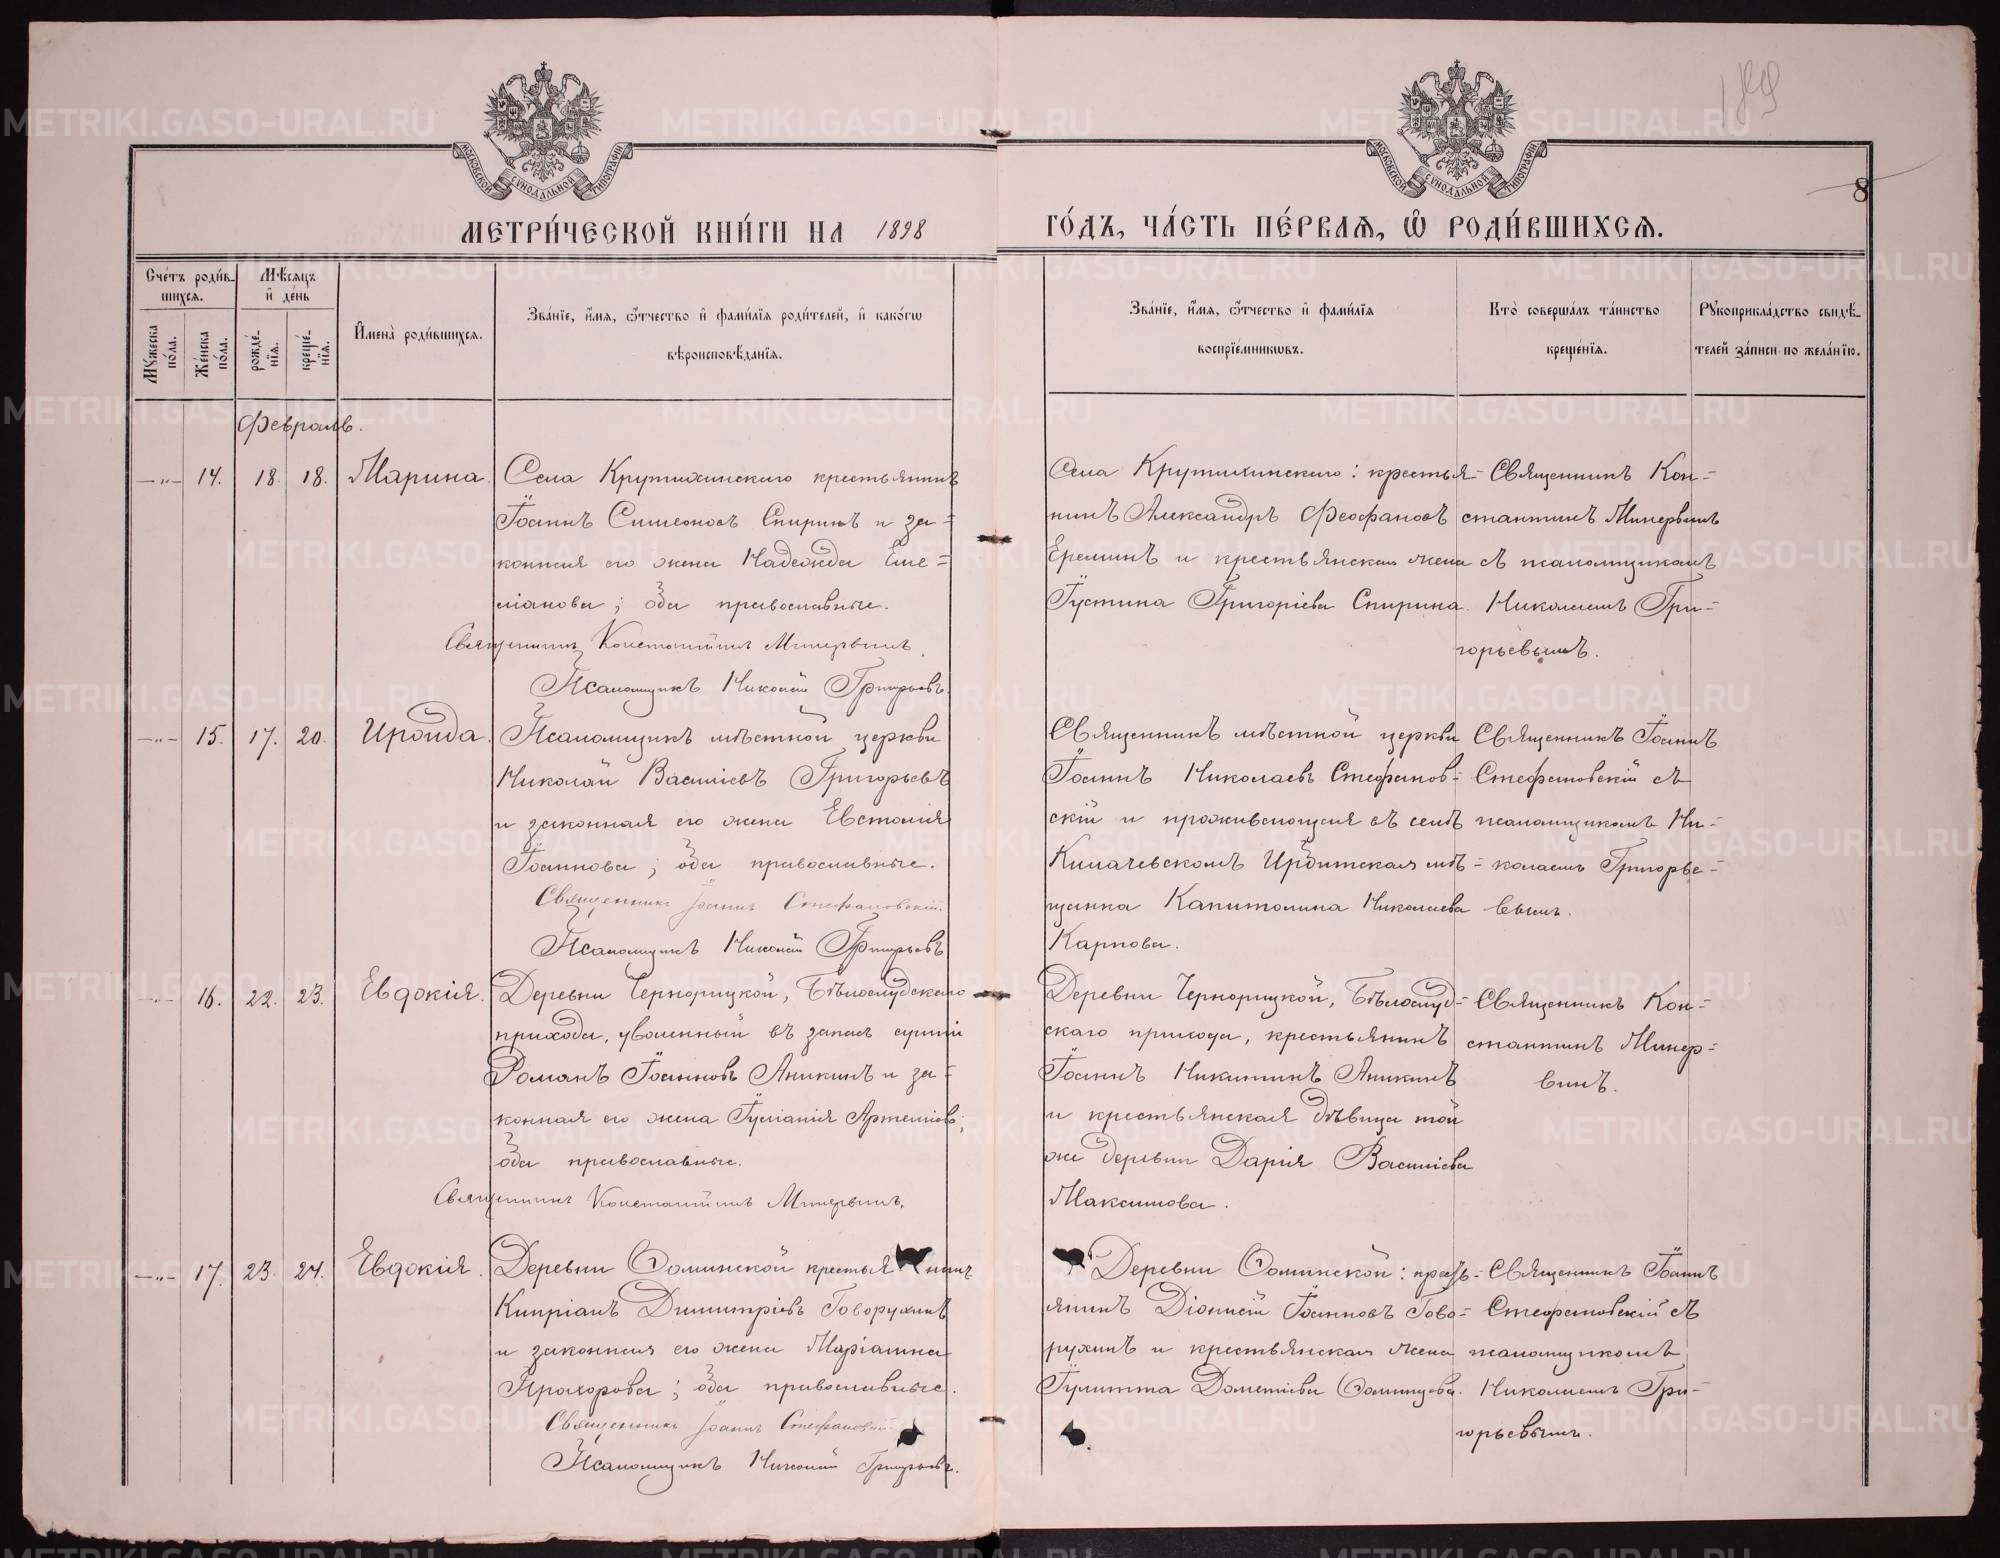 189
8
МОСКОВСКОЙ СѴНОДАЛЬНОЙ ТИПОГРАФІИ
МОСКОВСКОЙ СѴНОДАЛЬНОЙ ТИПОГРАФІИ
МЕТРИ́ЧЕСКОЙ КНИ́ГИ НА 1898
ГО́ДЪ, ЧА́СТЬ ПЕ́РВАѦ, Ѡ҆ РОДИ́ВШИХСѦ.
Сче́тъ роди́в-
шихсѧ.
Мѣ́сѧцъ
и҆ де́нь
Мꙋ́жеска
по́ла.
Же́нска
по́ла.
рожде́-
нїѧ.
креще́-
нїѧ.
И҆мена̀ роди́вшихсѧ.
Зва́нїе, и҆́мѧ, ѻ҆́тчество и҆ фами́лїѧ роди́телей, и҆ како́гѡ
вѣроисповѣ́данїѧ.
Зва́нїе, и҆́мѧ, ѻ҆́тчество и҆ фами́лїѧ
воспрїе́мникѡвъ.
Кто̀ соверша́лъ та́инство
креще́нїѧ.
Рꙋкоприкла́дство свидѣ́-
телей за́писи по жела́нїю.
Февраль.
—"— 14. 18. 18. Марина.
Села Крутихинскаго крестьянинъ
Іоаннъ Симеоновъ Спиринъ и за-
конная его жена Надежда Еме-
ліанова; оба православные.
Священникъ Константинъ Минервинъ.
Псаломщикъ Николай Григорьевъ.
Села Крутихинскаго: крестья-
нинъ Александръ Феофановъ
Ереминъ и крестьянская жена
Іустина Григоріева Спирина.
Священникъ Кон-
стантинъ Минервинъ
съ псаломщикомъ
Николаемъ Гри-
горьевымъ.
—"— 15. 17. 20. Ироида.
Псаломщикъ мѣстной церкви
Николай Василіевъ Григорьевъ
и законная его жена Евстолія
Іоаннова; оба православные.
Священникъ Іоаннъ Стефановскій.
Псаломщикъ Николай Григорьевъ
Священникъ мѣстной церкви
Іоаннъ Николаевъ Стефанов-
скій и проживающая въ селѣ
Килачевскомъ Ирбитская мѣ-
щанка Капитолина Николаева
Карпова.
Священникъ Іоаннъ
Стефановскій съ
псаломщикомъ Ни-
колаемъ Григорье-
вымъ.
—"— 16. 22. 23. Евдокія.
Деревни Чернорицкой, Бѣлослудскаго
прихода, уволенный въ запасъ арміи
Романъ Іоанновъ Аникинъ и за-
конная его жена Іуліанія Артеміева;
оба православные.
Священникъ Константинъ Минервинъ.
Деревни Чернорицкой, Бѣлослуд-
скаго прихода, крестьянинъ
Іоаннъ Никитинъ Аникинъ
и крестьянская дѣвица той
же деревни Дарія Василіева
Максимова.
Священникъ Кон-
стантинъ Минер-
винъ.
—"— 17. 23. 24. Евдокія.
Деревни Фоминской крестьянинъ
Кипріанъ Димитріевъ Говорухинъ
и законная его жена Маріамна
Прохорова; оба православные.
Священникъ Іоаннъ Стефановскій.
Псаломщикъ Николай Григорьевъ.
Деревни Фоминской: кресть-
янинъ Діонисій Іоанновъ Гово-
рухинъ и крестьянская жена
Іулитта Дометіева Фоминцева.
Священникъ Іоаннъ
Стефановскій съ
псаломщикомъ
Николаемъ Гри-
горьевымъ.